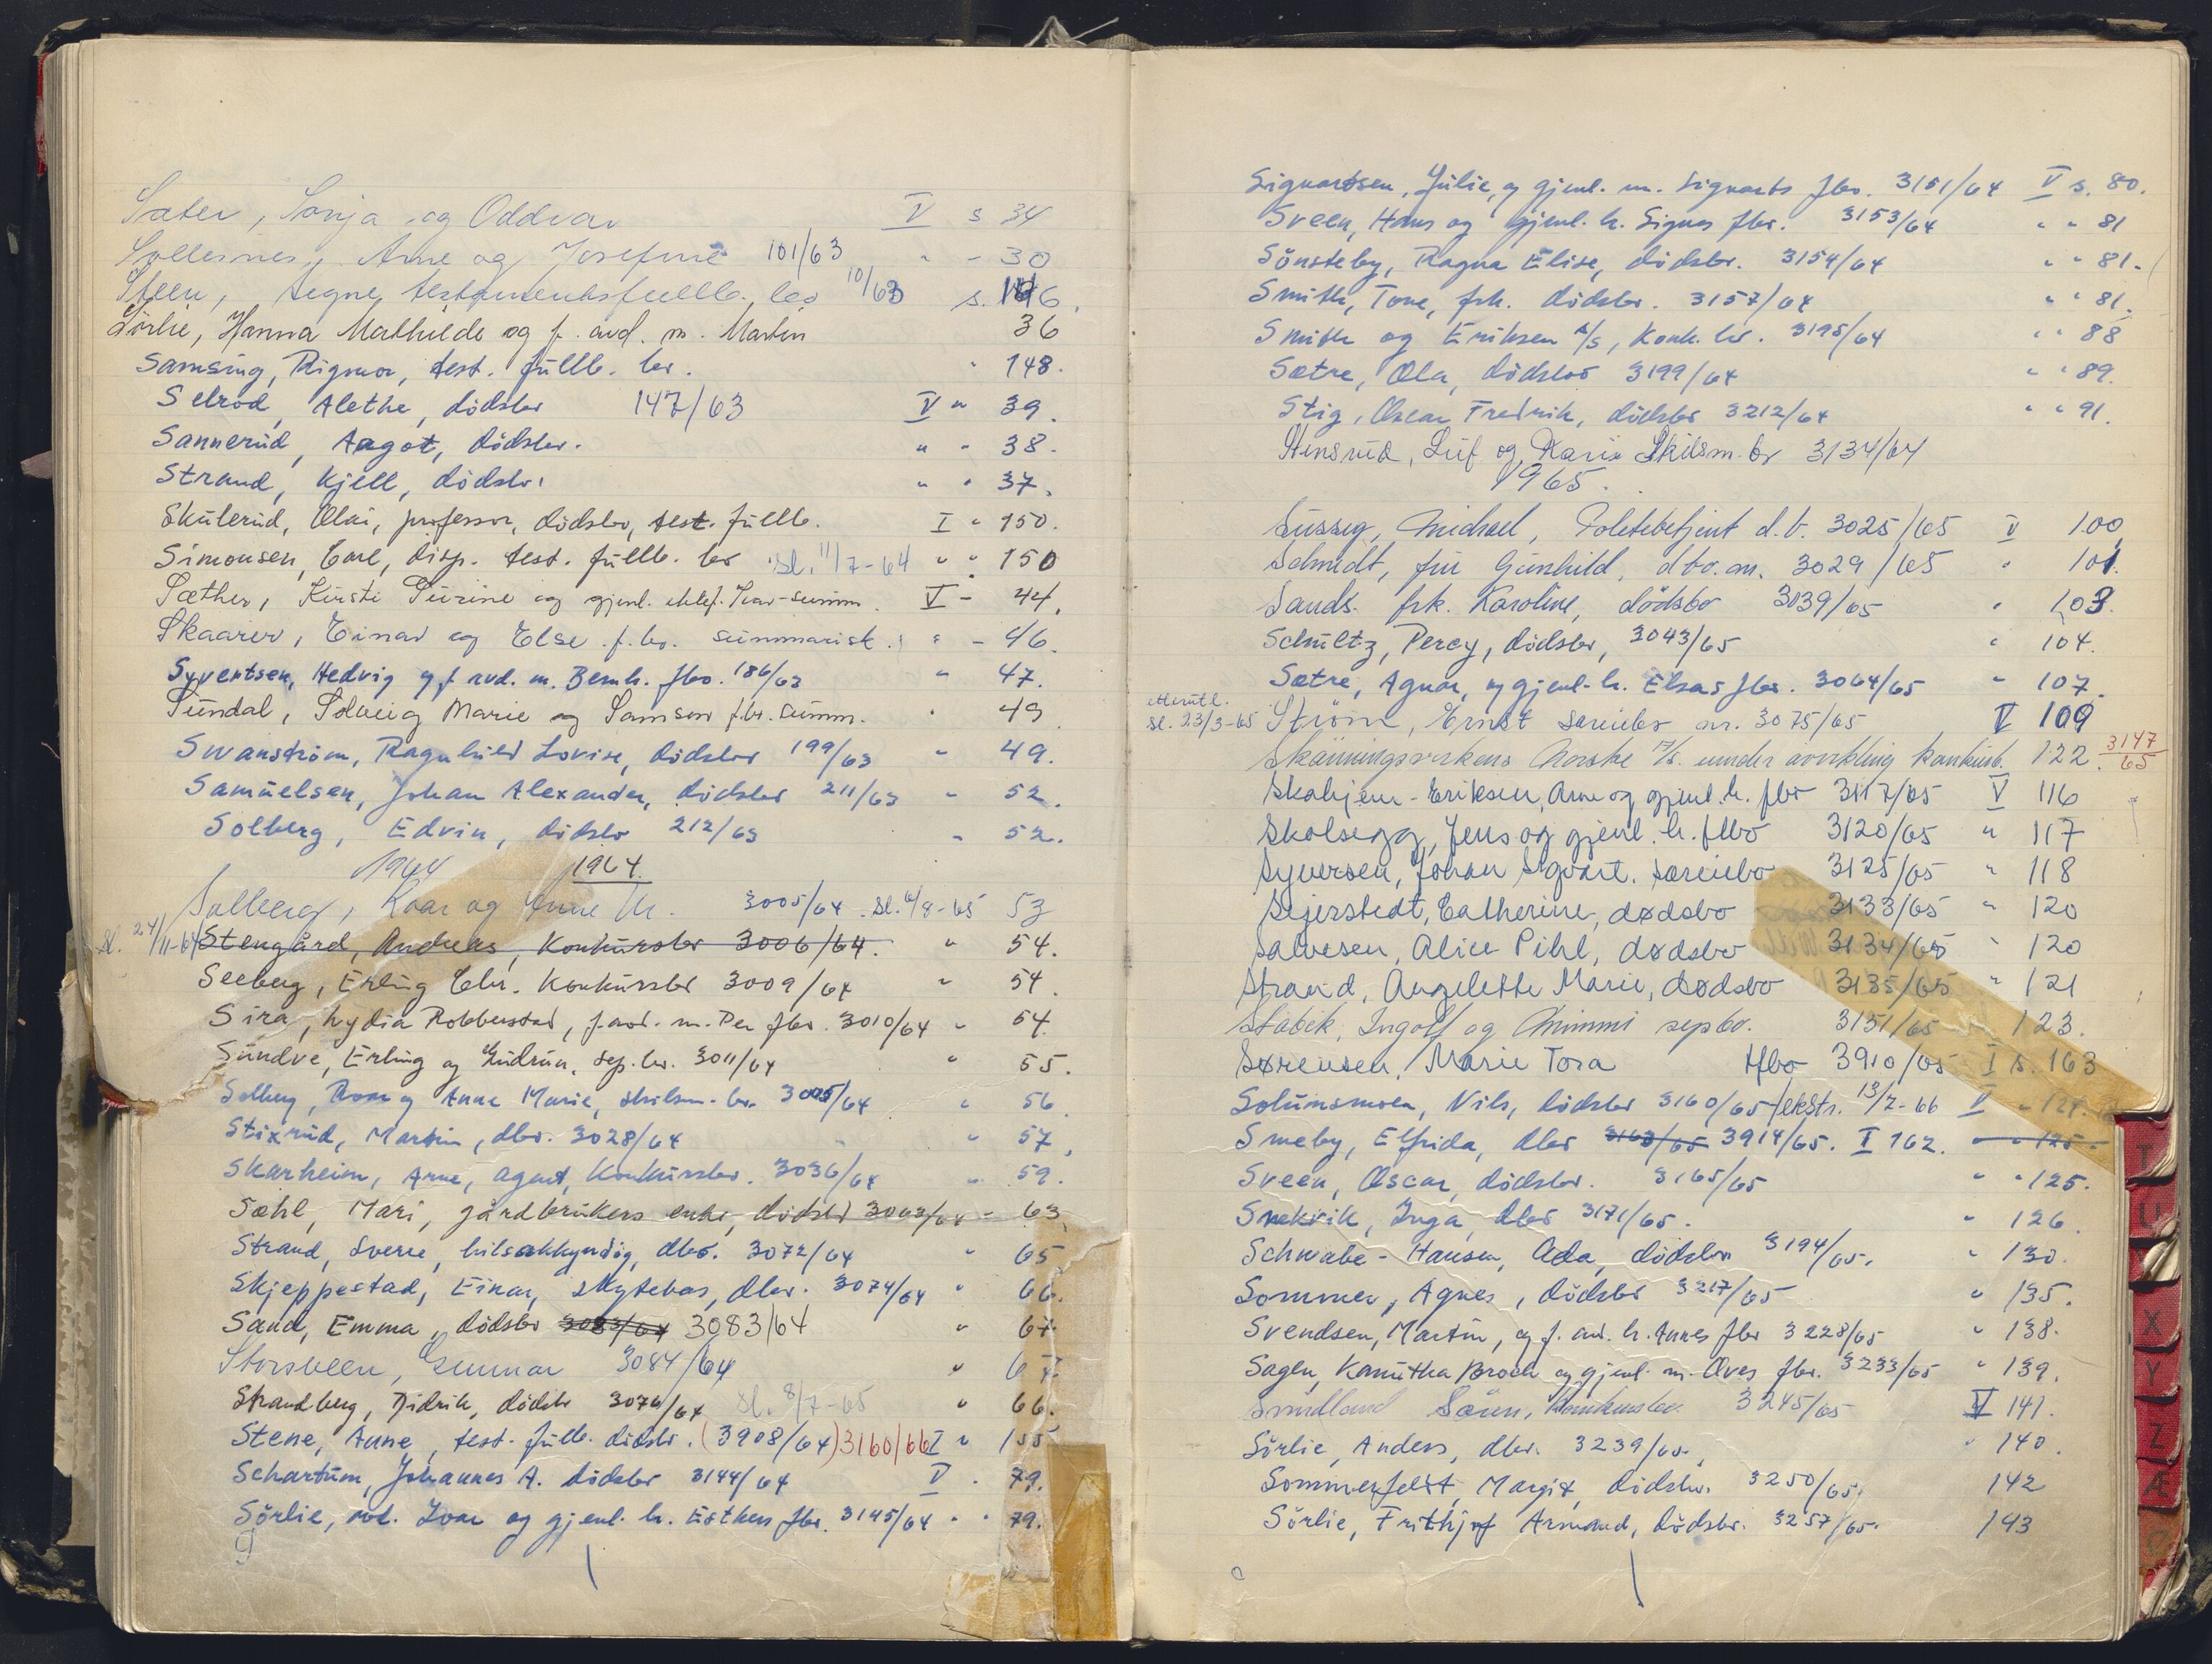 Sæter, Sonja og Oddvar V s 34
Sollesnes, Arne og Josefine 101/63 " - 30
Steen, Signe, testamentsfullb. bo 10/63 s. 146.
Sörlie, Hanna Mathilde og f. avd. m. Martin 36
Samsing, Rigmor, test. fullb. bo. " 148.
Selrod, Alethe, dödsbo 147/63 V " 39.
Sannerud, Aagot, dödsbo. " - 38.
Strand, Kjell, dödsbo. " " 37.
Skulerud, Olai, professor, dödsbo, test. fullb. I " 150.
Simonsen, Carl, disp. test. fullb. bo sl. 11/7-64 " " 150
Sæther, Kirsti og gjenl. ektef. summ. V - 44.
Skaarer, Einar og Else f.bo. summarisk. " - 46.
Syvertsen, Hedvig og f. avd. m. Bernh. fbo. 186/63 " 47.
Sundal, Solveig Marie og Samson f.bo. summ. " 49
Swanström, Ragnhild Lovise, dödsbo 199/63 " 49.
Samuelsen, Johan Alexander, dödsbo 211/63 " 52.
Solberg, Edvin, dödsbo 212/63 " 52.
1964 1964.
Solberg, Roar og Anne M. 3005/64. sl. 6/8-65 53
sl. 24/11-64 Stengård, Andreas, Konkursbo 3006/64. " 54.
Seeberg, Erling Chr. Konkursbo 3009/64 " 54.
Sira, Lydia Robberstad, f. avd. m. Per fbo. 3010/64 " 54.
Sundve, Erling og Gudrun, sep. bo. 3011/64 " 55.
Solberg, Roar og Anne Marie, skilsm. bo. 3005/64 " 56
Stixrud, Martin, dbo. 3028/64 " 57,
Skarheim, Arne, agent, Konkursbo. 3036/64 " 59.
Sæhl, Mari, gårdbrukers enke, dödsbo 3063/64 - 63.
Strand, Sverre, bilsakkyndig, dbo. 3072/64 " 65
Skjeppestad, Einar, skytebas, dbo. 3074/64 " 66.
Sand, Emma, dödsbo 3083/64 3083/64 " 67.
Storsveen, Gunnar 3084/64 " 67.
Strandberg, Didrik, dödsbo 3076/64 sl. 8/7-65 " 66.
Stene, Anne, test. fullb. dödsbo. (3908/64) 3160/66 I " 155
Schartum, Johannes A. dödsbo 3144/64 V . 79.
Sörlie, avd. Ivar og gjenl. h. Esthers fbo. 3145/64 " " 79.
Sigvartsen, Julie, og gjenl. m. Sigvarts fbo. 3151/64 V s. 80.
Sveen, Hans og gjenl. h. Signes fbo. 3153/64 " " 81
Sönsteby, Ragna Elise, dödsbo. 3154/64 " " 81.
Smith, Tone, frk. dödsbo. 3157/64 " " 81.
Smith og Eriksen A/S, Konk. bo. 3195/64 " " 88
Sætre, Ola, dödsbo 3199/64 " " 89.
Stig, Oscar Fredrik, dödsbo 3212/64 " " 91.
Stensrud, Leif og Karin Skilsm. bo 3134/64
1965.
Sussig, Michael, Politibetjent d.b. 3025/65 V 100
Schmidt, fru Gunhild, dbo. nr. 3029/65 " 101.
Sands. frk. Karoline, dödsbo 3039/65 " 103.
Schultz, Percy, dödsbo, 3043/65 " 104.
Sætre, Agnar, og gjenl. h. Elsas fbo. 3064/65 " 107.
sl. 23/3-65 Ström, Ernst særeiebo nr. 3075/65 V 109
Skänningsverkens Norske A/S. under avvikling konkursb. 122. 3147/65
Skahjem-Eriksen, Arne og gjenl. h. fbo 3117/65 V 116
Skolsegg, Jens og gjenl. h. flbo 3120/65 " 117
Syversen, Johan Sigvart. særeiebo 3125/65 " 118
Sejerstedt, Catherine, dødsbo 3133/65 " 120
Salvesen, Alice Pihl, dødsbo 3134/65 " 120
Strand, Angelette Marie, dødsbo 3135/65 " 121
Stabek, Ingolf og Mimmi sepbo. 3151/65 " 123.
Sørensen, Marie Tora Hfbo 3910/65 I s. 163
Solumsmoen, Nils, dödsbo 3160/65 /ekstr. 13/7-66 V " 124.
Smeby, Elfrida, dbo 3163/65 3914/65. I 162. " " 125.
Sveen, Oscar, dödsbo. 3165/65 " " 125.
Snekvik, Inga, dbo 3171/65. " 126.
Schwabe-Hansen, Ada, dödsbo 3194/65. " 130.
Sommer, Agnes, dödsbo 3217/65 " 135.
Svendsen, Martin, og f. avd. h. Annes fbo 3228/65 " 138.
Sagen, Kamitha Broch og gjenl. m. Oves fbo. 3233/65 " 139.
Sundland Sören, Konkursbo. 3245/65 V 141.
Sörlie, Anders, dbo. 3239/65. " 140.
Sommerfeldt, Margit, dödsbo. 3250/65. 142
Sörlie, Frithjof Armand, dödsbo. 3257/65. 143
T
U
X
Y
Z
Æ
Ø